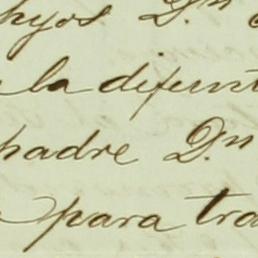 hyos Dn
la difunt
padre Dn
para tra